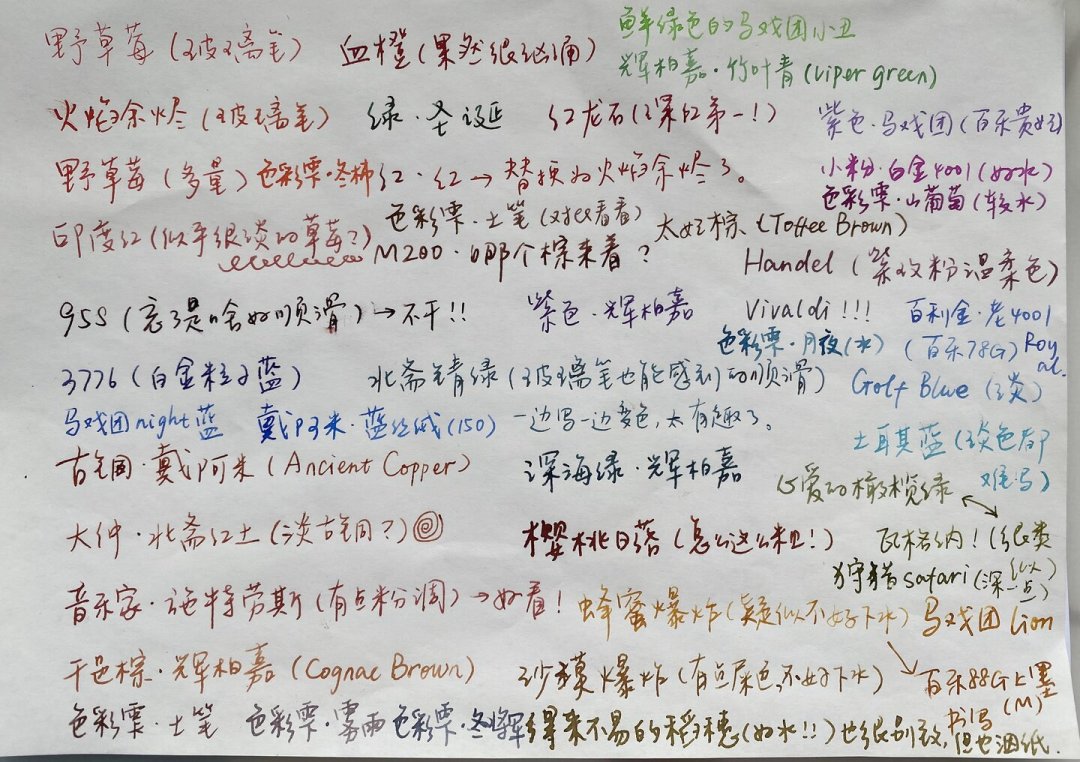 野草莓（玻璃笔） 血橙（果然很汹涌） 鲜绿色的马戏团小丑
辉柏嘉·竹叶青（viper green）
火焰余烬（玻璃笔） 绿·圣诞 红龙石（深红第一！） 紫色·马戏团（百乐贵妃）
野草莓（多量） 色彩雫·冬柿 红·红→替换为火焰余烬了。 小粉·白金4001（好水）
色彩雫·山葡萄（较水）
印度红（似乎很淡的草莓？） 色彩雫·土笔（对比看看） 太妃棕（Toffee Brown）
M200·哪个棕来着？ Handel（紫灰粉温柔色）
955（忘了是啥好顺滑）→不干!! 紫色·辉柏嘉 Vivaldi!!! 百利金·老4001
色彩雫·月夜（水）（百乐78G） Royal.
3776（白金粒子蓝） 北斋青绿（玻璃笔也能感到的顺滑） Golf Blue（淡）
马戏团night蓝 戴阿米·蓝丝绒（150） 一边写一边变色，太有趣了。
土耳其蓝（淡色有即难写）
古铜·戴阿米（Ancient Copper） 深海绿·辉柏嘉 心爱的橄榄绿
大仲·北斋红土（淡古铜？） 樱桃日落（怎么这么粗！） 瓦格纳！（很类似）
狩猎safari（深一点）
音乐家·施特劳斯（有点粉调）→好看！ 蜂蜜爆炸（疑似不好下水） 马戏团lion
干邑棕·辉柏嘉（Cognac Brown） 沙漠爆炸（有点屎色，不好下水） 百乐88G上墨
书写（M）
色彩雫·土笔 色彩雫·雾雨 色彩雫·冬将军 得来不易的稻穗（好水!!）也很别致，但也洇纸.